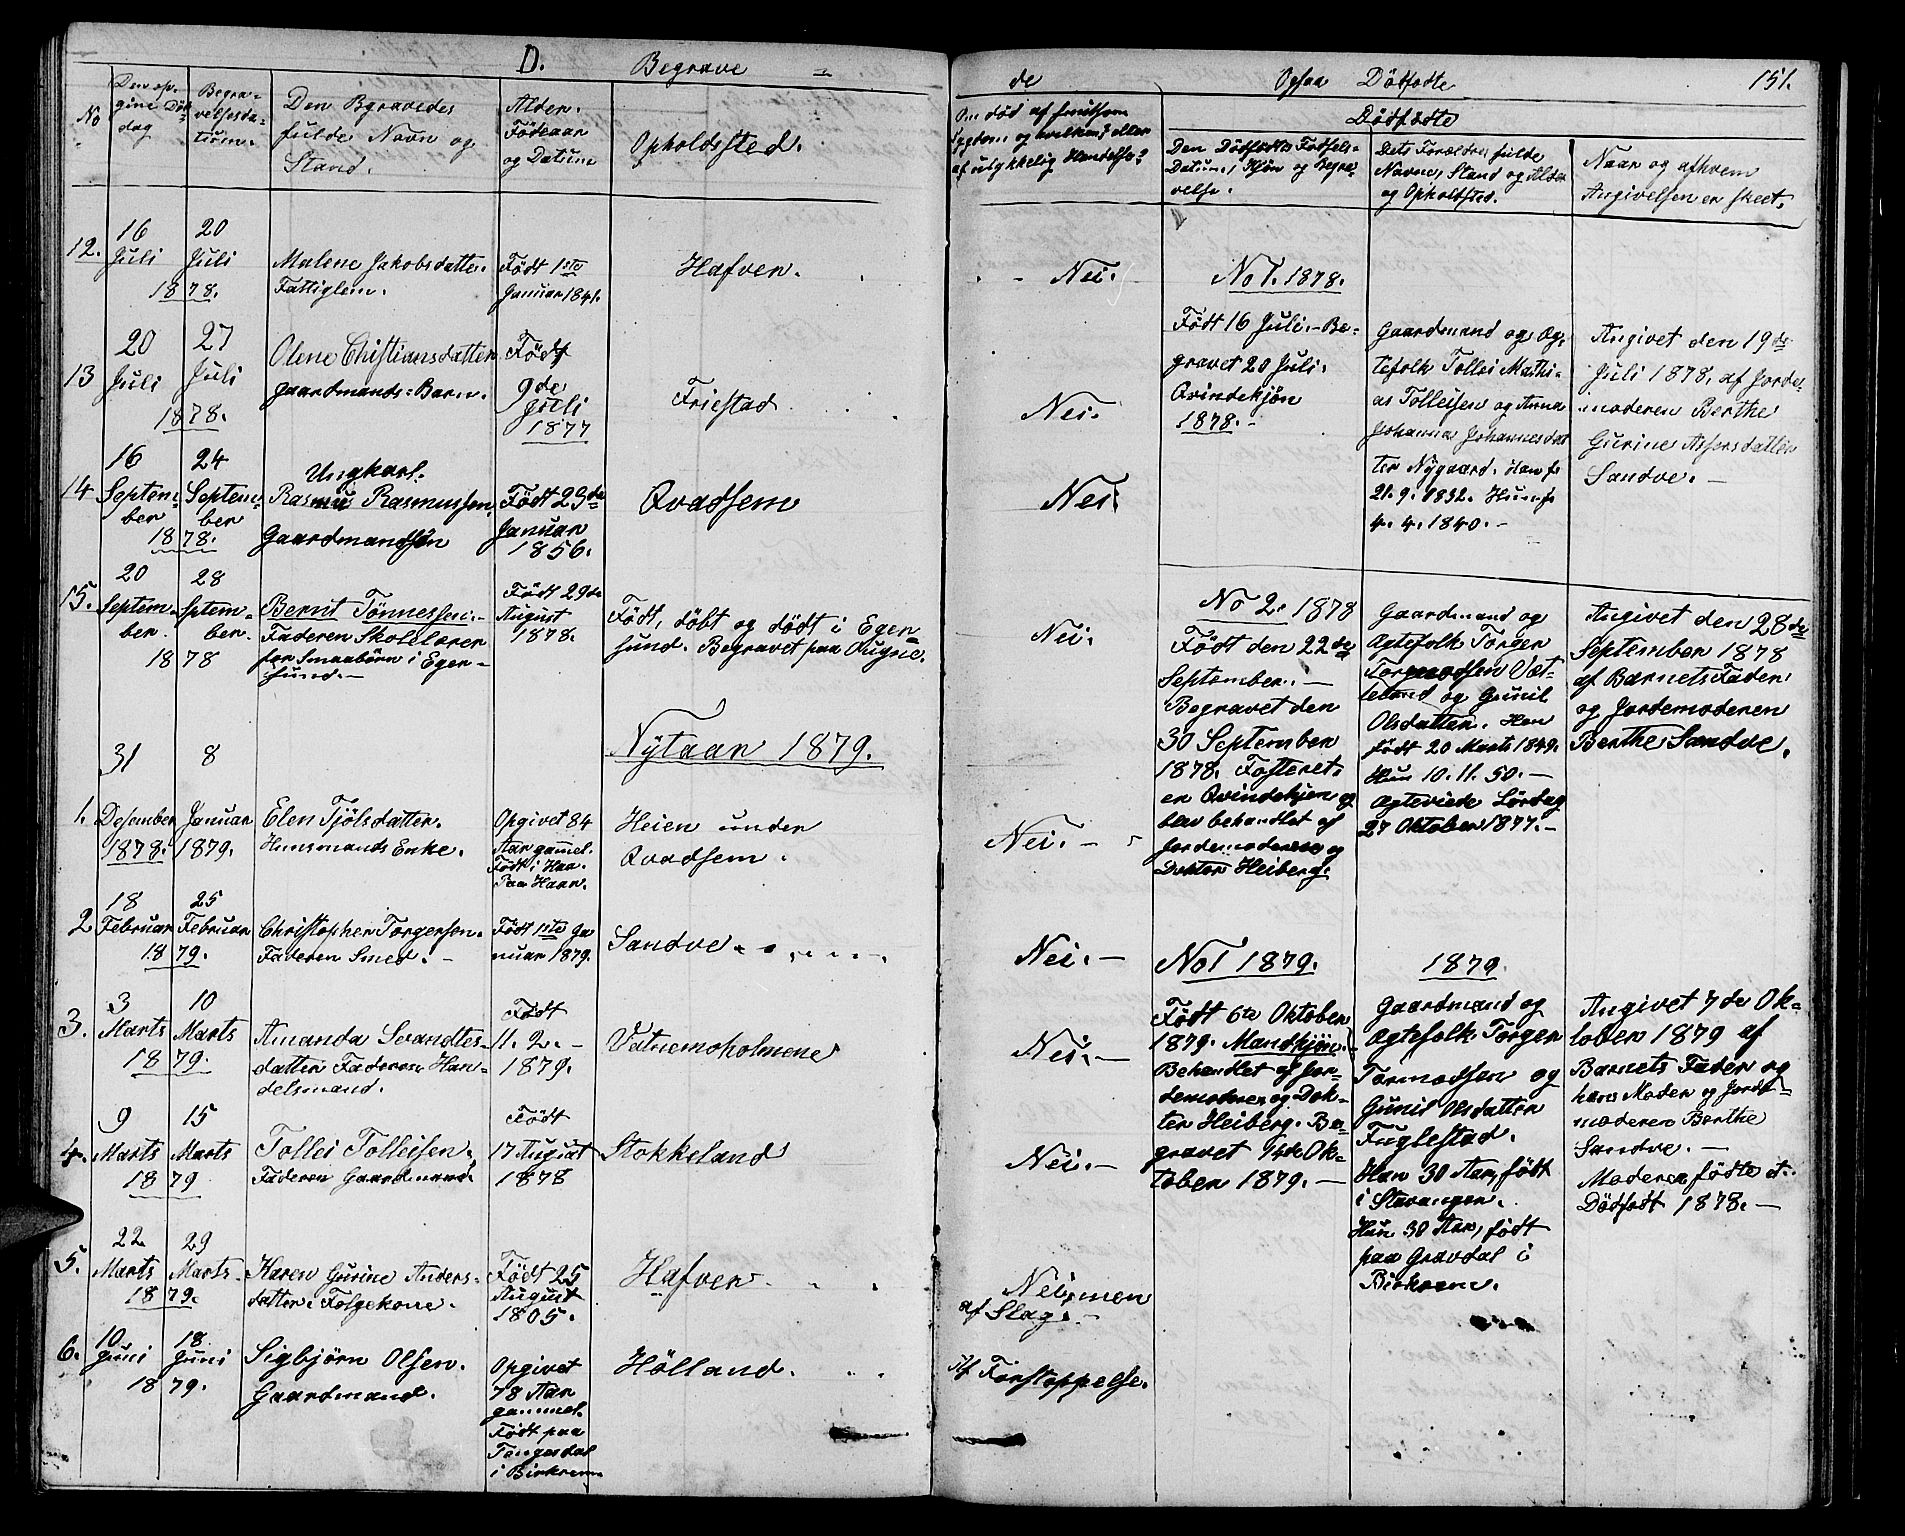 D. Begrave =
No
Den op-
gine Död
dag
Begra-
velsesda-
tum.
Den Bgravedes
fulde Navn og
Stand.
Alder.
Födeaar
og Datum
Opholdssted.
12.
16
Juli
1878.
20
Juli
Malene Jakobsdatter.
Fattiglem.
Födt 1ste
Januar 1841.
Hafven.
13
20
Juli
1878.
27
Juli
Olene Christiansdatter
Gaardmands=Barn.
Födt
9de
Juli
1877
Friestad
14
16
Septem-
ber
1878.
24
Septem-
ber
Ungkarl.
Rasmus Rasmussen,
Gaardmandsön
Födt 23de
Januar
1856.
Qvadsem
15.
20
Septem-
ber.
1878
28
Septem-
ber.
Bernt Tönnessen.-
Faderen Skolelærer
for Smaabörn i Eger-
sund.-
Födt 29de
August
1878.
Födt, döbt og död i Eger=
sund. Begravet paa Ougne.
Nytaar 1879.
1.
31
Desember
1878.
8
Januar
1879.
Elen Tjölsdatter.
Husmands Enke.
Opgivet 84
Aar gammel.
Födt i Haa.
Paa Haar.
Heien under
Qvadsem.
2
18
Februar
1879.
25
Februar
Christopher Torgersen.
Faderen Smed.-
Födt 1ste Ja
nuar 1879.
Sandve.
3.
3
Marts
1879.
10
Marts
Amanda Svandtes-
datter Faderen Han-
delsmand.
Födt
11. 2.-
1879.
Vatnemoholmene
4.
9
Marts
1879
15
Marts
Tollei Tolleisen.
Faderen Gaardmand.
Födt
17 August
1878
Stokkeland
5.
22
Marts
1879.
29
Marts
Karen Gurine Anders-
datter. Følgekone.
Födt 25
August
1805.
Hafven
6.
10
Juni
1879.
18
Juni
Sigbjörn Olsen.
Gaardmand.
Opgivet
78 Aar
gammel.
Födt paa
Tengesdal
i Birkrem
Hölland.
de Ogsaa Dödfödte 151.
Om död af smitsom
Sygdom og hvilken? eller
af ulykkelig Hændelse?
Dödfödte
Den Dödfödtes Födsels-
Datum, Kjön og Begra-
velse.
Dets Forældres fulde
Navne, Stand og Alder
og Opholdsted.
Naar og af hvem
Angivelsen er skeet.
Nei.
Nei.
Nei.
Nei.
Nei.-
Nei.-
Nei.-
Nei.-
Nei, men
af Slag.-
Af Forstoppelse.
No 1. 1878.
Födt 16 Juli.- Be-
gravet 20 Juli.
Qvindekjön
1878.-
Gaardmand og Æg-
tefolk Tollei Mathi-
as Tolleisen og Anna
Johanna Johannesdat
ter Nygaard. Han f.
21. 9. 1832. Hun f.
4. 4. 1840.-
Angivet den 19de
Juli 1878, af Jorde-
moderen Berthe
Gurine Assersdatter
Sandve.-
No 2. 1878
Födt den 22de
September.-
Begravet den
30 September
1878. Fosteret
er Qvindekjön og
blev behandlet af
Jordemoderen og
Doktor Heiberg.
Gaardmand og
Ægtefolk Torger
Tormodsen Væt-
teland og Gunil
Olsdatter. Han
födt 20 Marts 1849.
Hun 10. 11. 50.-
Ægteviede Lördag
27 Oktober 1877.-
Angivet den 28de
September 1878
af Barnets Fader
og Jordemoderen
Berthe Sandve.
No 1 1879.
Födt 6te Oktober
1879. Mandkjön.
Behandlet af Jor-
demoderen og Dok-
ter Heiberg. Be-
gravet 14de Ok-
tober 1879.-
1879.
Gaardmand og
Ægtefolk Torger
Tormodsen og
Gunil Olsdatter
Fuglestad.
Han 30 Aar, födt
i Stavanger.
Hun 30 Aar, födt
paa Gravdal i
Birkrem.
Angivet 7de Ok-
tober 1879 af
Barnets Fader og
hans Moder og Jorde-
moderen Berthe
Sandve.-
Moderen födte et
Dödfödt 1878.-